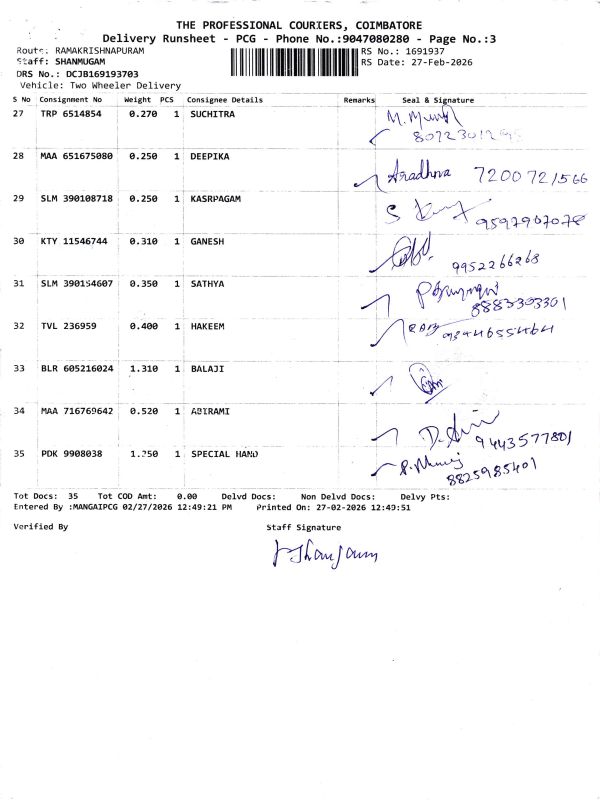 THE PROFESSIONAL COURIERS, COIMBATORE
Delivery Runsheet - PCG - Phone No.:9047080280 - Page No.:3
Route: RAMAKRISHNAPURAM RS No.: 1691937
Staff: SHANMUGAM RS Date: 27-Feb-2026
DRS No.: DCJB169193703
Vehicle: Two Wheeler Delivery
S No Consignment No Weight PCS Consignee Details Remarks Seal & Signature
27 TRP 6514854 0.270 1 SUCHITRA
28 MAA 651675080 0.250 1 DEEPIKA Aradhva 7200721566
29 SLM 390108718 0.250 1 KASRPAGAM 9597907078
30 KTY 11546744 0.310 1 GANESH 9952266268
31 SLM 390154607 0.350 1 SATHYA 8883303301
32 TVL 236959 0.400 1 HAKEEM
33 BLR 605216024 1.310 1 BALAJI
34 MAA 716769642 0.520 1 ABIRAMI 9443577801
35 PDK 9908038 1.250 1 SPECIAL HAND 8825985401
Tot Docs: 35 Tot COD Amt: 0.00 Delvd Docs: Non Delvd Docs: Delvy Pts:
Entered By :MANGAIPCG 02/27/2026 12:49:21 PM Printed On: 27-02-2026 12:49:51
Verified By Staff Signature